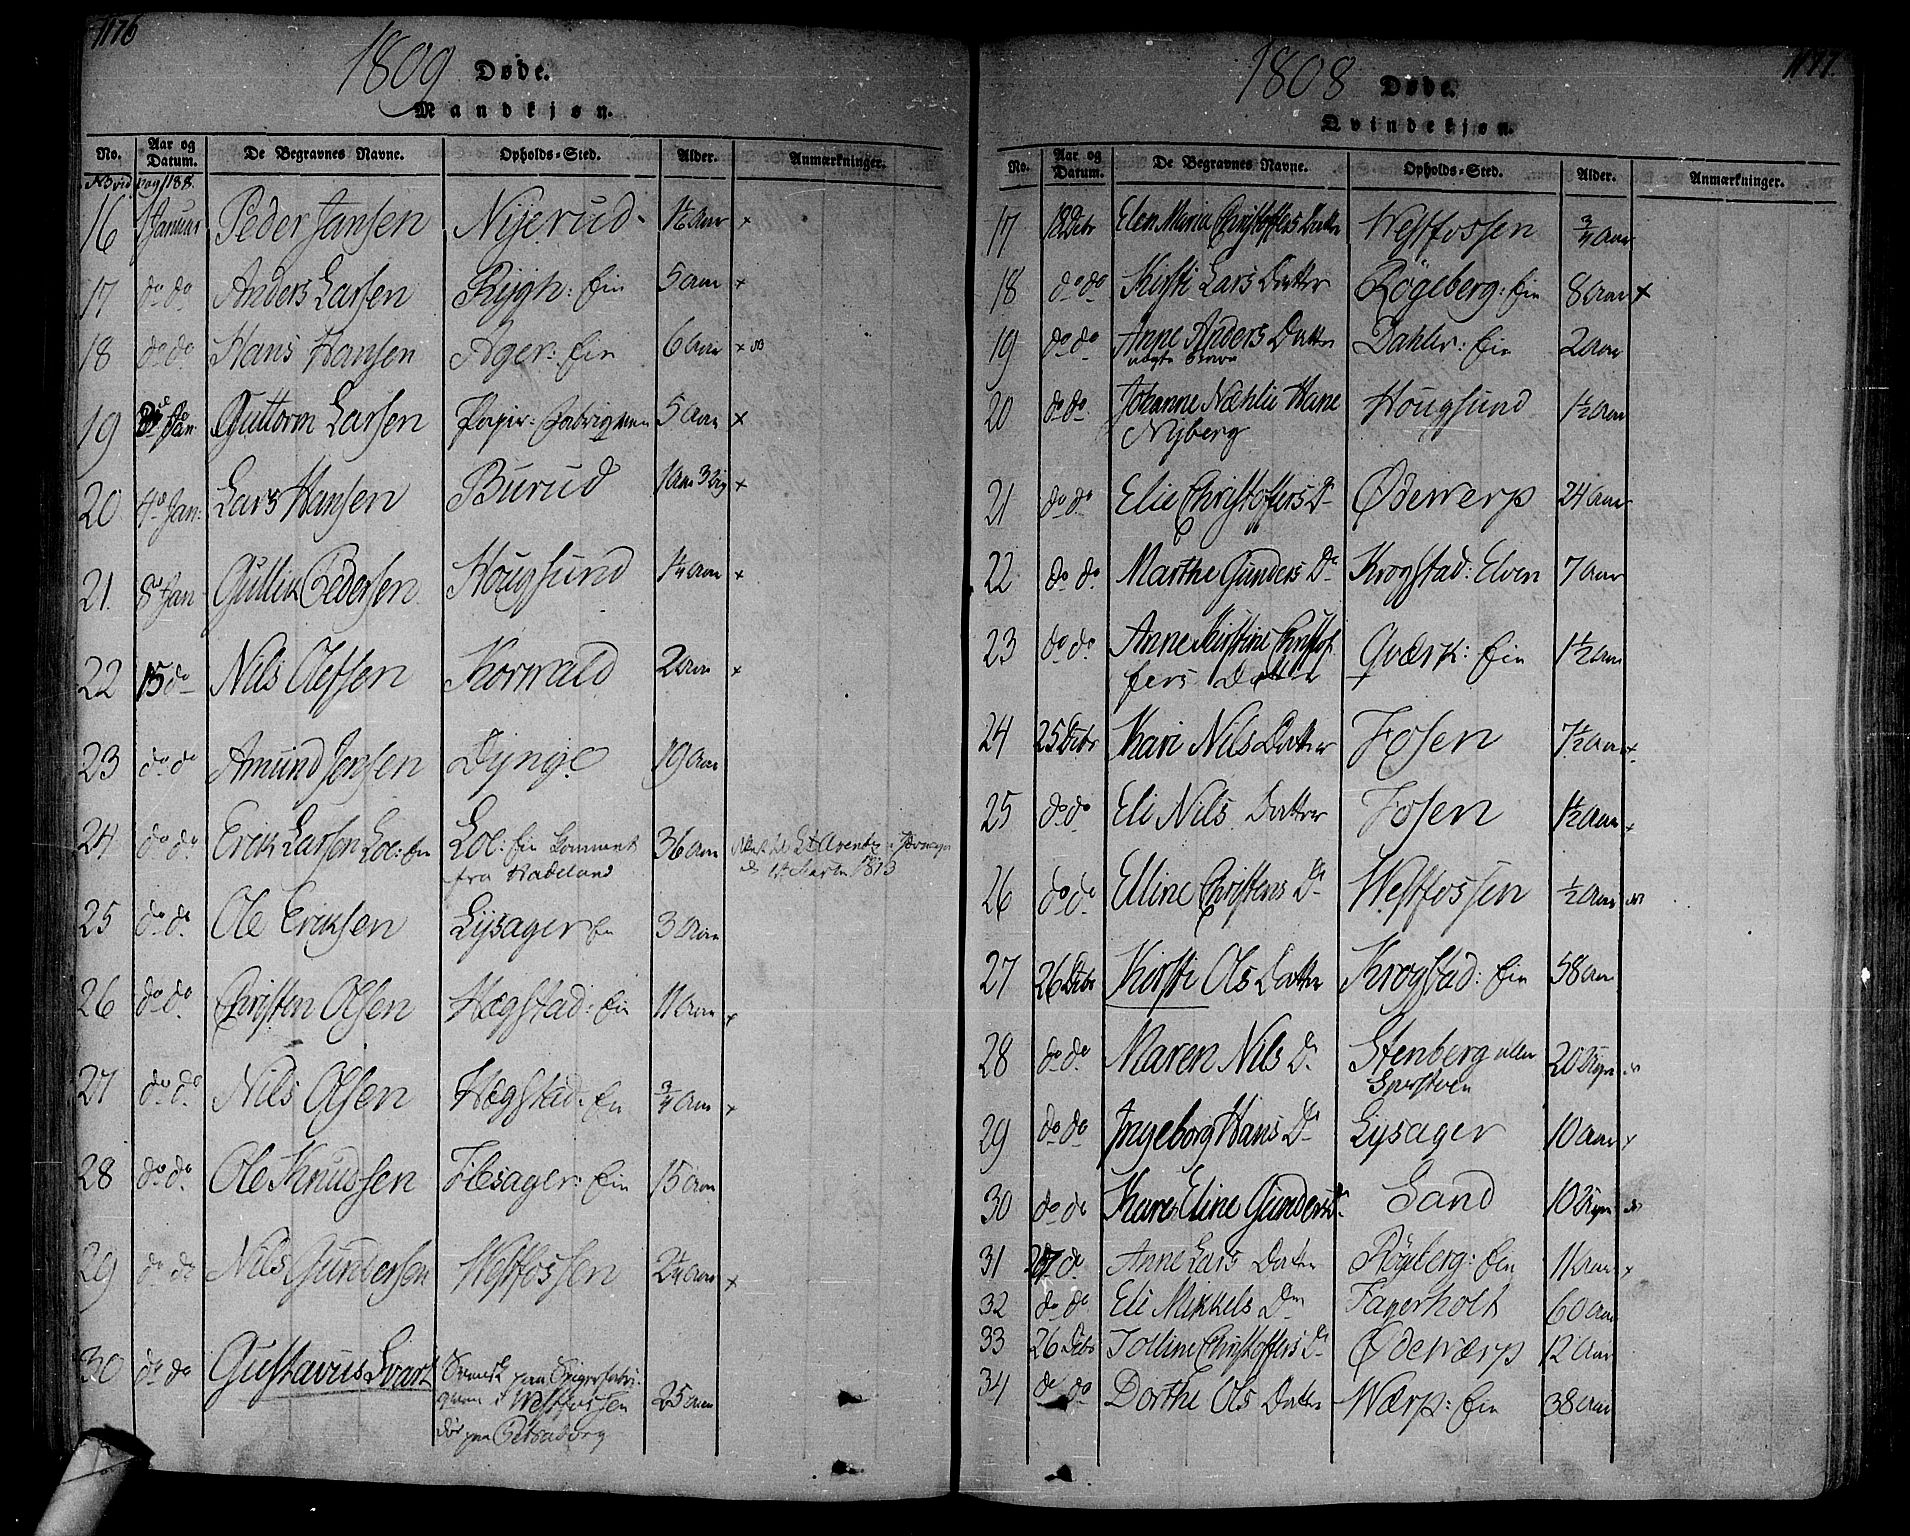 1176
1809 Døde.
Mandkjøn.
No. Aar og Datum. De Begravnes Navne. Opholds-Sted. Alder. Anmærkninger.
NB vid pag 1188.
16 1 Januar Peder Jansen Nijerud 1½ Aar x
17 do do Anders Larsen Rijgh: Ein 5 Aar x
18 do do Hans Hansen Ager: Ein 6 Aar x
19 Jan: Guttorm Larsen Papir: Fabriquen 5 Aar x
20 4de Jan: Lars Hansen Burud 1 Aar 3 x
21. 8de Jan Gullik Pedersen Hougsund 1¼ Aar x
22 15 do Nils Olessen Korwald 2 Aar x
23 do do Amund Jensen Dynge 19 Aar
24 do do Erik Larsen Loe: Ein Loe: Ein kommen fra Hadeland 36 Aar 1813
25 do do Ole Eriksen Lijsager Ein 3 Aar
26 do do Christen Olsen Hægstad: Ein 11 Aar x
27 do do Nils Olsen Hægstad: Ein ¾ Aar x
28 do do Ole Knudsen Ilesager: Ein 15 Aar
29 do do Nils Gundersen Westfossen 2¼ Aar x
30 do do Gustavus Svart Svensk paa Spigerfabri-
quen i Westfossen 25 Aar
1177.
1808 Døde.
Qvindekjøn.
No. Aar og Datum. De Begravnes Navne. Opholds-Sted. Alder. Anmærkninger.
17 18 Decbr Elen Maria Christoffers Datter Westfossen ¾ Aar
18 do do Kirsti Lars Datter Røgeberg: Ein 8 Aar x
19 do do Anne Anders Datter Dahler: Ein 2 Aar
20 do do Johanne Næhlie Hane
Nyberg Hougsund 1½ Aar
21 do do Elie Christoffers Dr Ødewerp 24 Aar
22 do do Marthe Gunders Dr Krogstad: Elven 7 Aar
23 do do Anne Kirstine Christof
fers Datter Qværk: Ein 1½ Aar
24 25 Decbr Kari Nils Datter Fosen 7½ Aar x
25 do do Eli Nils Datter Fosen 1½ Aar x
26 do do Elline Christens Dr Westfossen ½ Aar
27 26 Decbr Kirsti Ols Datter Krogstad: Ein 58 Aar
28 do do Maren Nils Dr Stenberg eller 20 Uger
29 do do Ingeborg Hans Dr Lysager 10 Aar x
30 do do Karen Eline Gunders Dr Sand 10 Uger
31 27 do Anne Lars Datter Røgberg: Ein 11 Aar x
32 do do Eli Mikkels Dr Fagerholt 60 Aar
33 26 Decbr Tolline Christoffers Dr Ødewærp 12 Aar
34 do do Dorthe Ols Datter Wærp: Ein 38 Aar